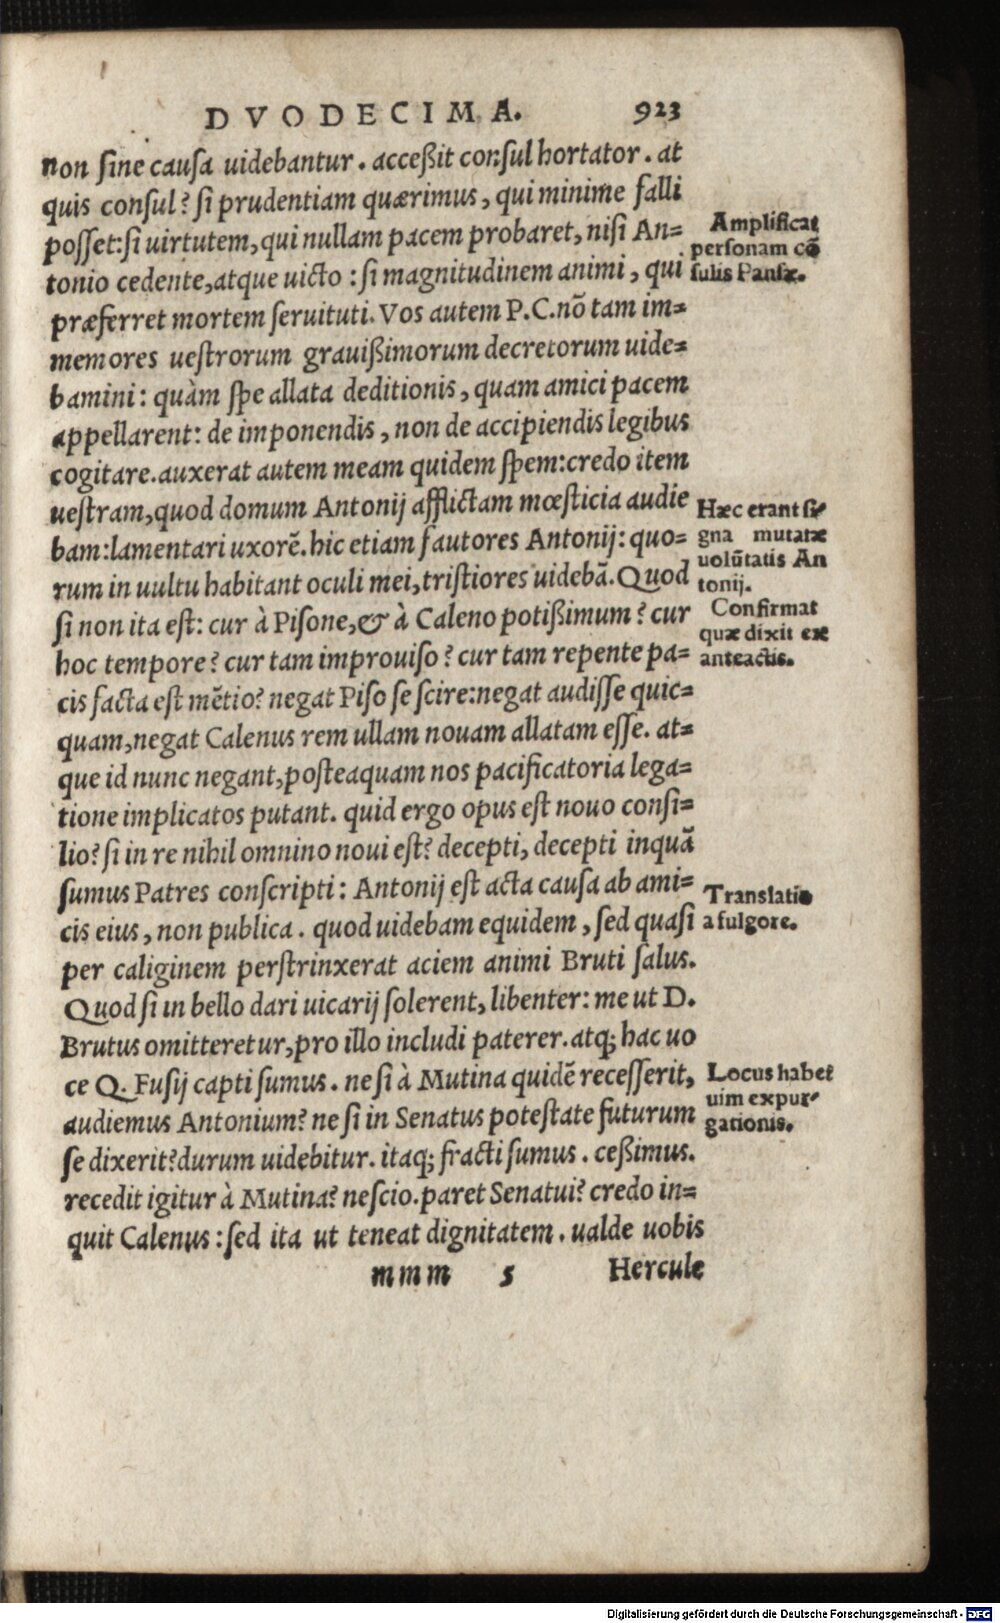 DVODECIMA. 923
non sine causa uidebantur. acceßit consul hortator. at
quis consul? si prudentiam quærimus, qui minime falli
posset: si uirtutem, qui nullam pacem probaret, nisi An=
tonio cedente, atque uicto: si magnitudinem animi, qui
præferret mortem seruituti. Vos autem P.C. nō tam im=
memores uestrorum grauißimorum decretorum uide=
bamini: quàm spe allata deditionis, quam amici pacem
appellarent: de imponendis, non de accipiendis legibus
cogitare. auxerat autem meam quidem spem: credo item
uestram, quod domum Antonij afflictam mœsticia audie
bam: lamentari uxorē. hic etiam fautores Antonij: quo=
rum in uultu habitant oculi mei, tristiores uidebā. Quod
si non ita est: cur à Pisone, & à Caleno potißimum? cur
hoc tempore? cur tam improuiso? cur tam repente pa=
cis facta est mētio? negat Piso se scire: negat audisse quic=
quam, negat Calenus rem ullam nouam allatam esse. at=
que id nunc negant, posteaquam nos pacificatoria lega=
tione implicatos putant. quid ergo opus est nouo consi=
lio? si in re nihil omnino noui est? decepti, decepti inquā
sumus Patres conscripti: Antonij est acta causa ab ami=
cis eius, non publica. quod uidebam equidem, sed quasi
per caliginem perstrinxerat aciem animi Bruti salus.
Quod si in bello dari uicarij solerent, libenter: me ut D.
Brutus omitteretur, pro illo includi paterer. atq; hac uo
ce Q. Fusij capti sumus. ne si à Mutina quidē recesserit,
audiemus Antonium? ne si in Senatus potestate futurum
se dixerit? durum uidebitur. itaq; fracti sumus. ceßimus.
recedit igitur à Mutina? nescio. paret Senatui? credo in=
quit Calenus: sed ita ut teneat dignitatem. ualde uobis
mmm 5 Hercule
Amplificat
personam cō
sulis Pansæ.
Hæc erant si=
gna mutatæ
uolūtatis An
tonij.
Confirmat
quæ dixit ex
anteactis.
Translatio
a fulgore.
Locus habet
uim expur=
gationis.
Digitalisierung gefördert durch die Deutsche Forschungsgemeinschaft - DFG